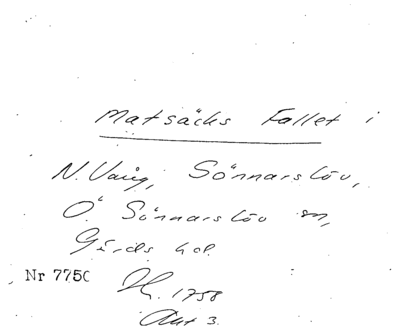 Matsäcks Fallet i
N. Vång, Sönnarslöv,
Ö. Sönnarslöv sn,
Gärds hd.
Nr 7750
1758
Akt 3.